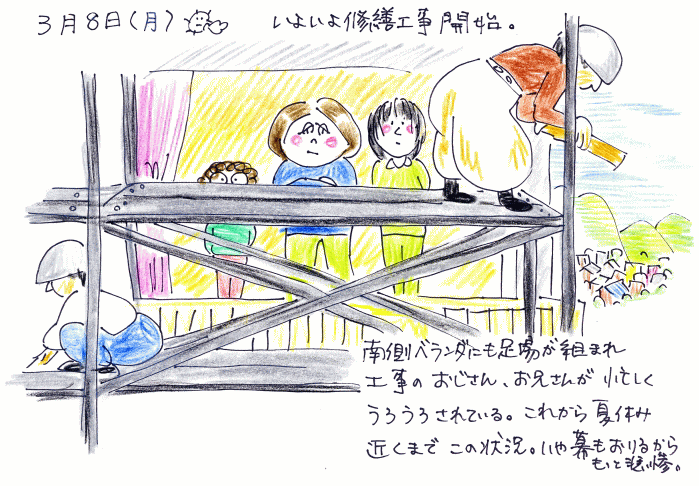 3月8日(月) いよいよ修繕工事開始。
南側ベランダにも足場が組まれ
工事のおじさん、お兄さんが忙しく
うろうろされている。これから夏休み
近くまでこの状況。いや幕もおりるから
もっと悲惨。